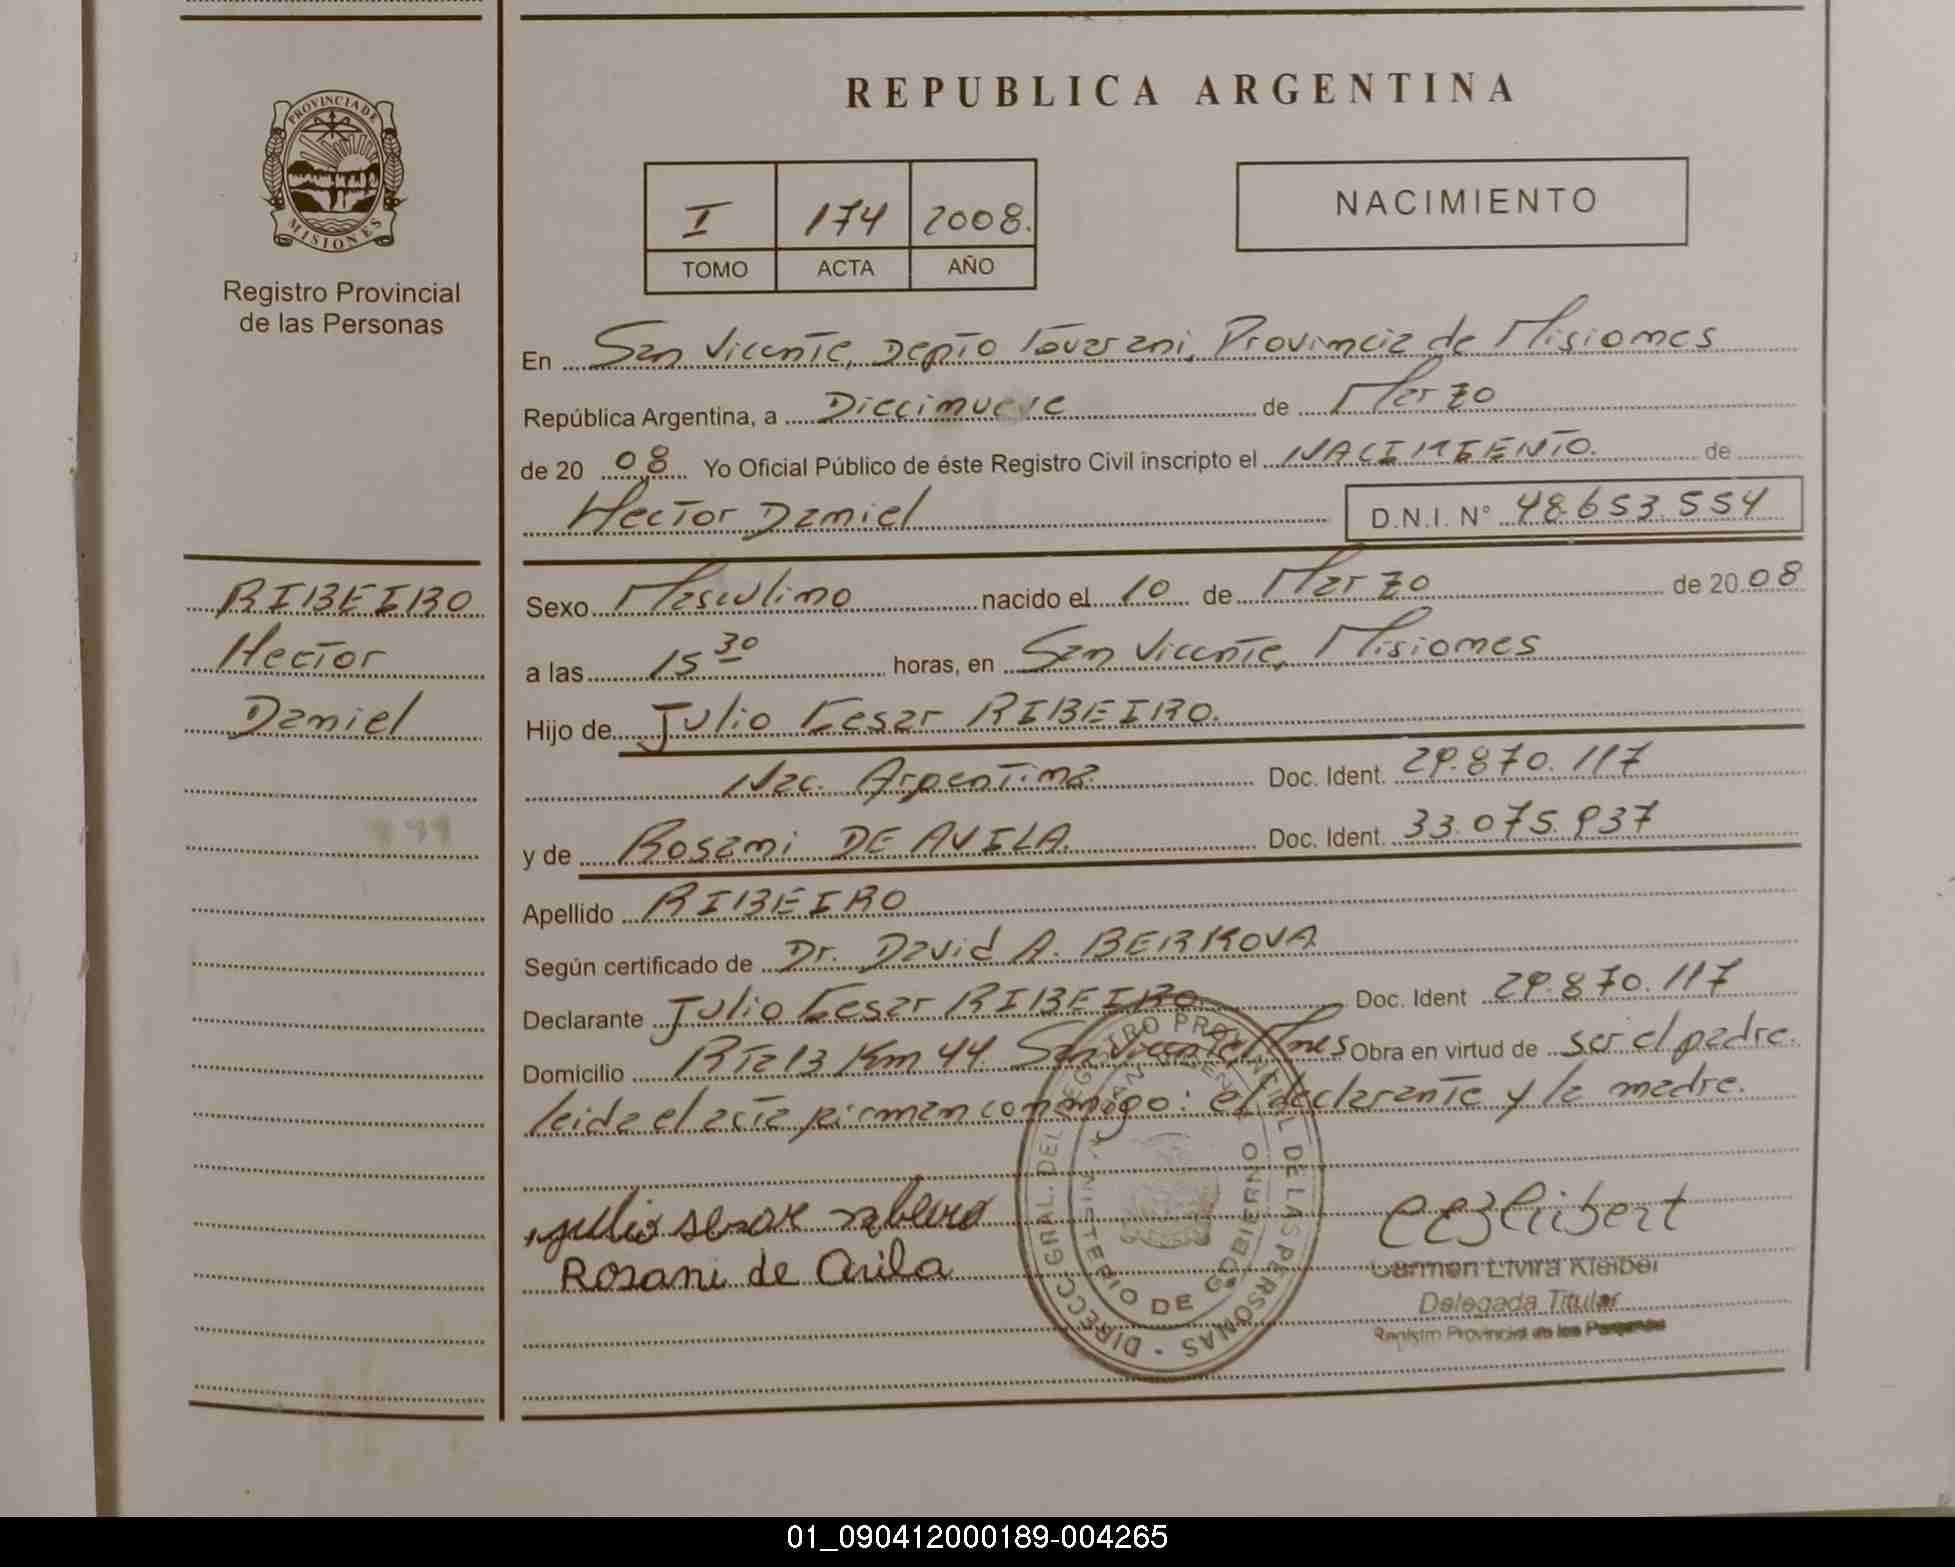 REPUBLICA ARGENTINA
PROVINCIA DE
MISIONES
Registro Provincial
de las Personas
I 174 2008.
TOMO ACTA AÑO
NACIMIENTO
En San Vicente, Depto Guarani, Provincia de Misiones
República Argentina, a Diecinueve de Marzo
de 20 08 Yo Oficial Público de éste Registro Civil inscripto el NACIMIENTO. de
Hector Daniel D.N.I. Nº 48.653.554
RIBEIRO
Hector
Daniel
Sexo Masculino nacido el 10 de Marzo de 20 08
a las 15 30 horas, en San Vicente, Misiones
Hijo de Julio Cesar RIBEIRO.
Nac. Argentina Doc. Ident. 29.870.117
y de Rosani DE AVILA. Doc. Ident. 33.075.937
Apellido RIBEIRO
Según certificado de Dr. David A. BERKOVA
Declarante Julio Cesar RIBEIRO Doc. Ident 29.870.117
Domicilio RTa 13 Km 44 San Vicente Mnes Obra en virtud de ser el padre.
leida el acta firman conmigo: el declarante y la madre.
julio sesar ribeiro
Rosani de Avila
DIRECC. GRAL. DEL REGISTRO PROVINCIAL DE LAS PERSONAS
MINISTERIO DE GOBIERNO
Carmen Elvira Kleibert
Delegada Titular
Registro Provincial de las Personas
01_090412000189-004265